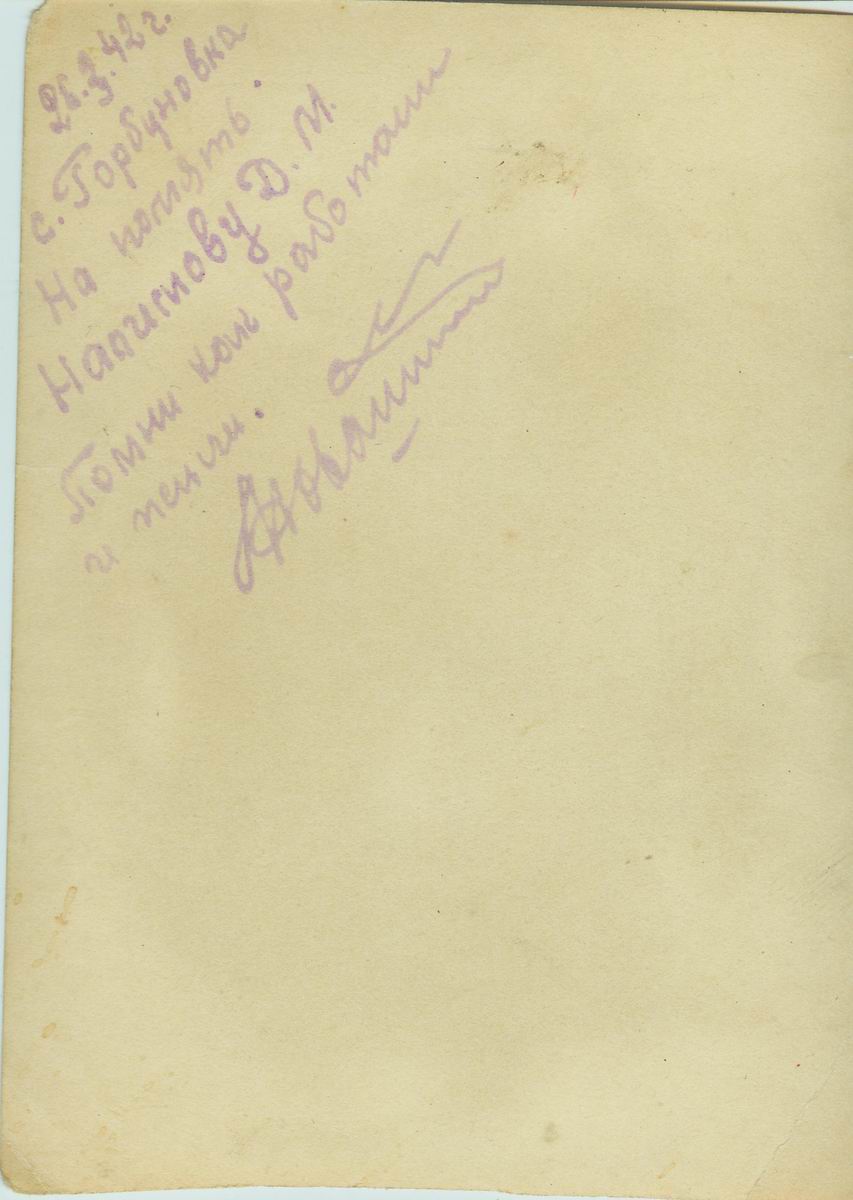 26.3.42 г.
с. Горбуновка
На память.
Д. М.
Помни как работали
и пели.